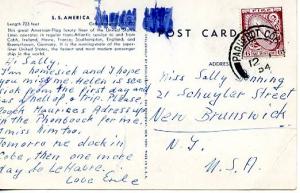 S.S. AMERICA
Length 723 feet
This great American-Flag luxury liner of the United States
Lines operates in regular trans-Atlantic service to and from
Cobh, Ireland, Havre, France; Southampton, England, and
Bremerhaven, Germany. It is the running-mate of the super-
liner United States, the fastest and most modern passenger
ship in the world.
POST CARD
ADDRESS
EIRE
PAQUEBOT
Hi Sally.
I'm homesick and I hope
you miss me. Helen is sea
sick from the first day and
has a hell of a trip. Please
Maurices Address up in
the Phonebook for me.
miss him too.
Tomorro we dock in
Cobe, then one more
day to LeHavre.
Love
Miss Sally
21 Schuyler Street
New Brunswick
N.Y.
U.S.A.